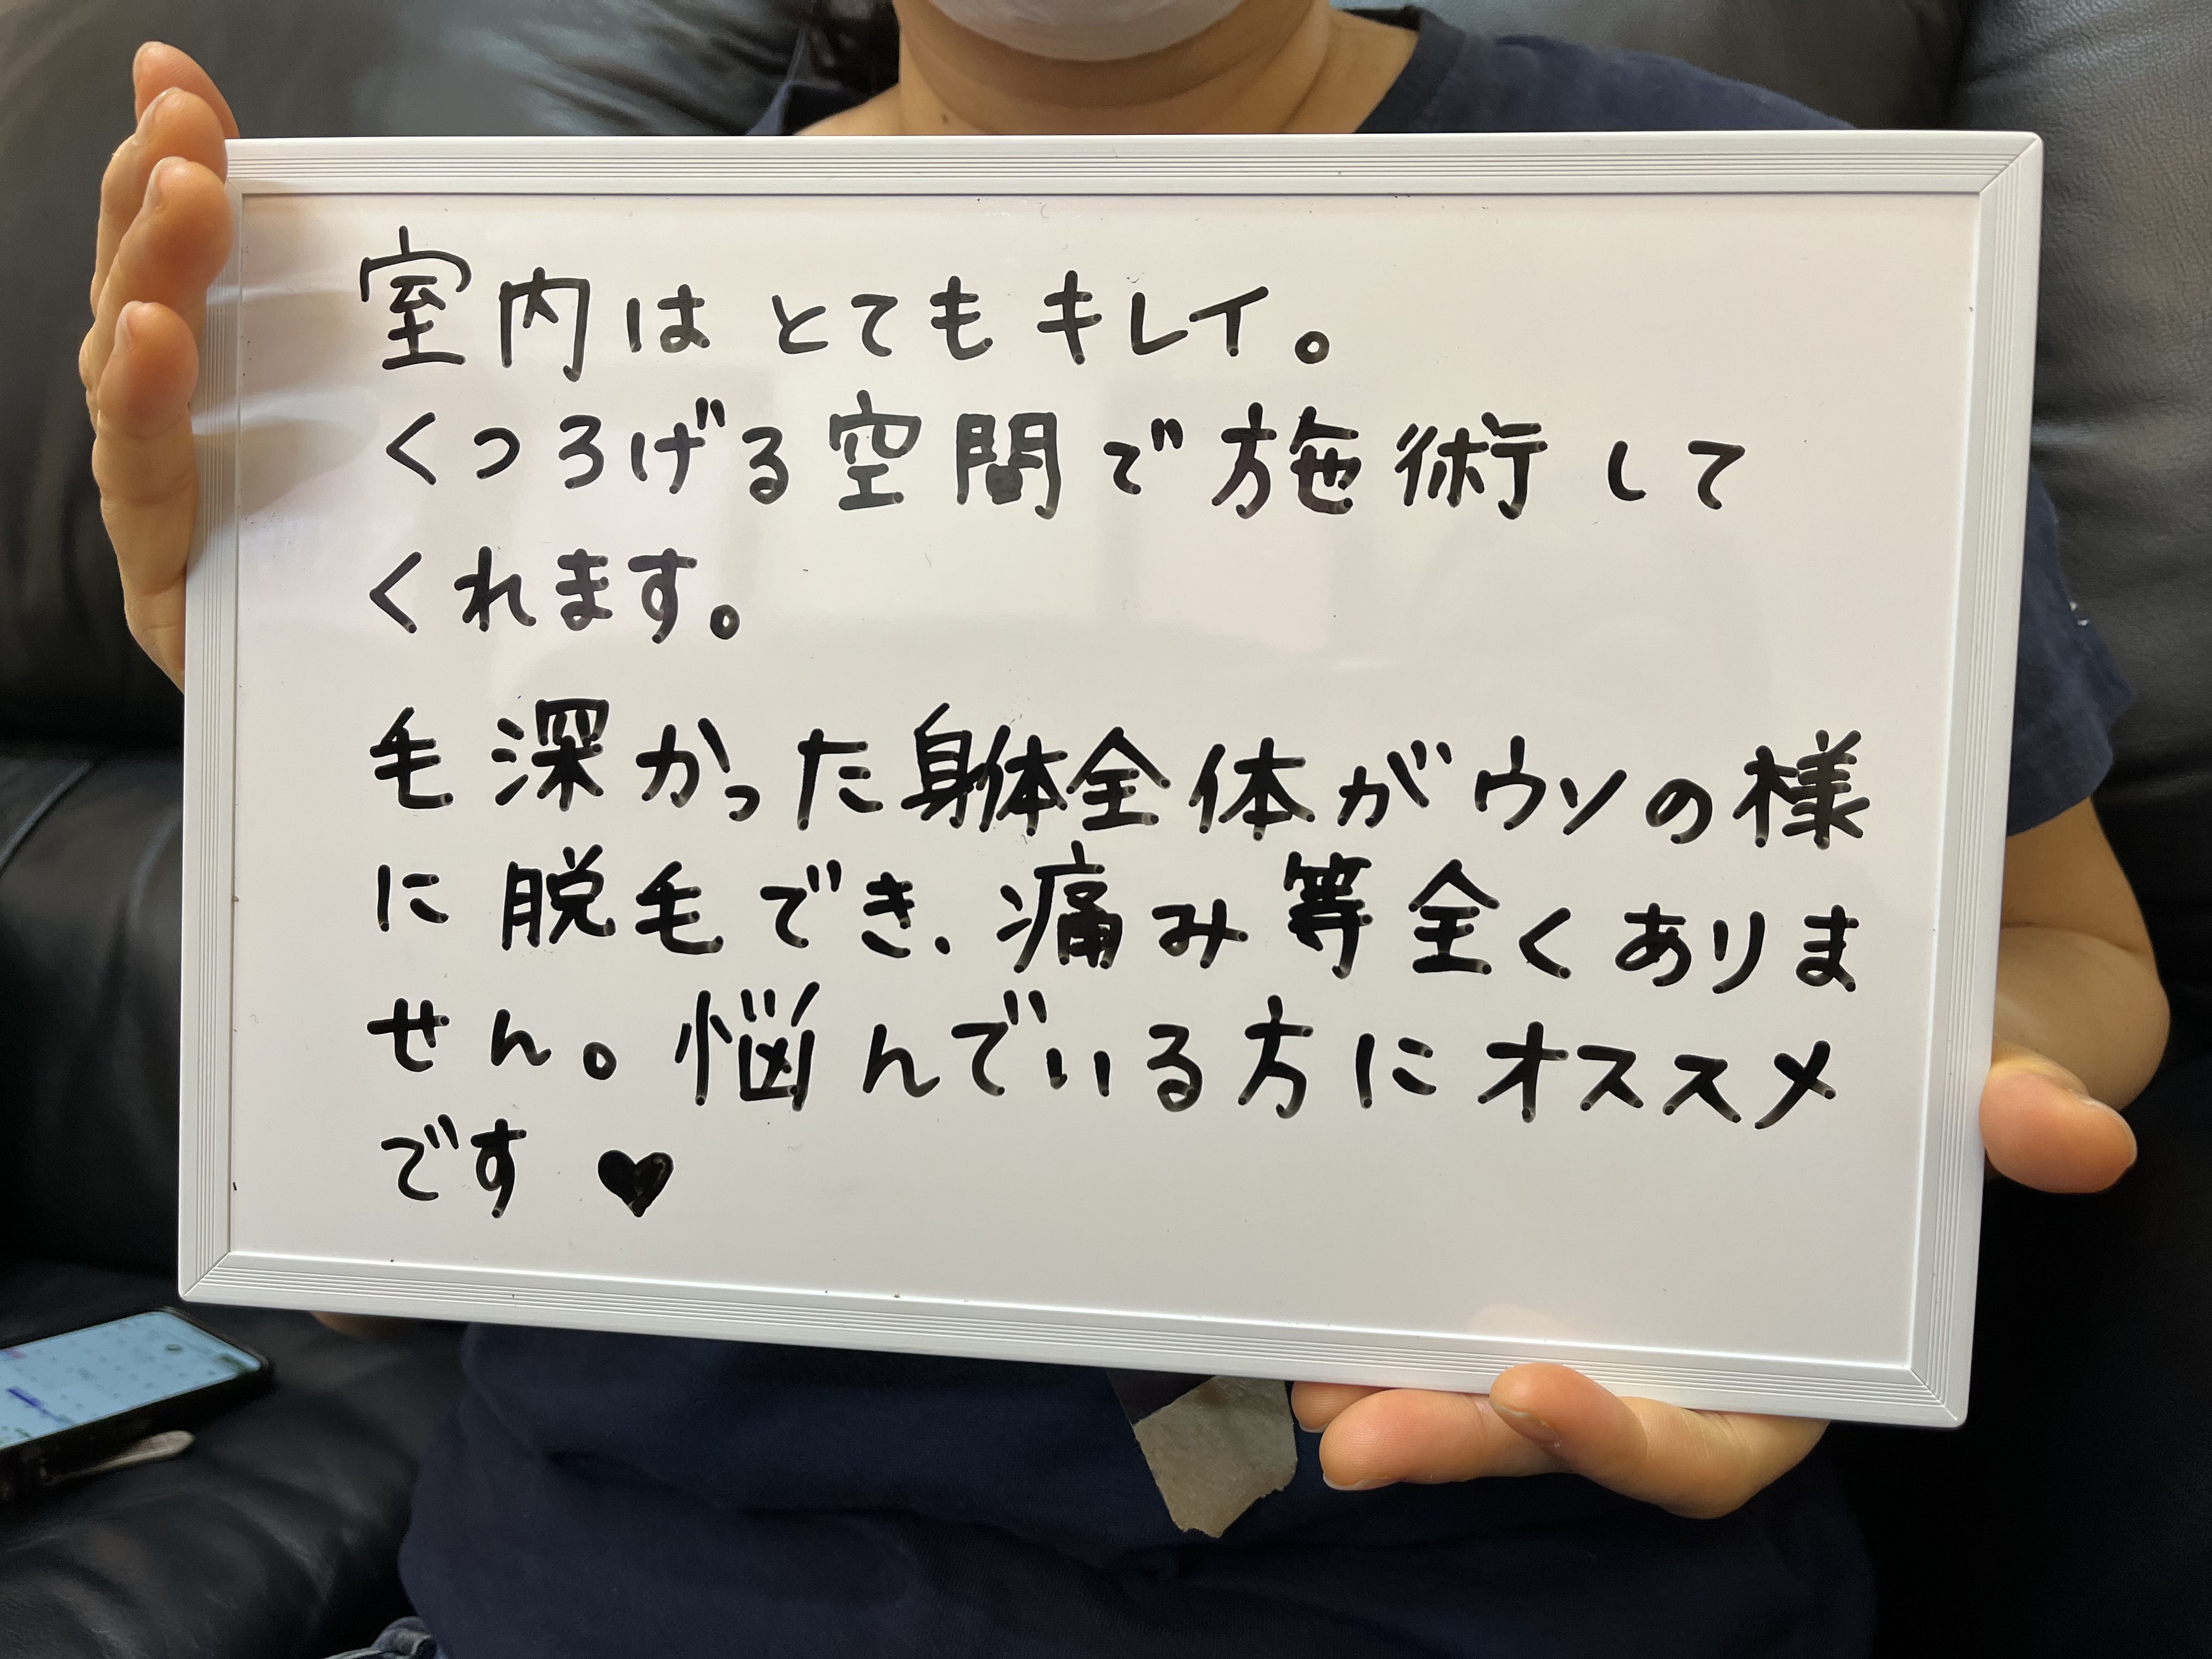 室内はとてもキレイ。
くつろげる空間で施術して
くれます。
毛深かった身体全体がウソの様
に脱毛でき、痛み等全くありま
せん。悩んでいる方にオススメ
です♥